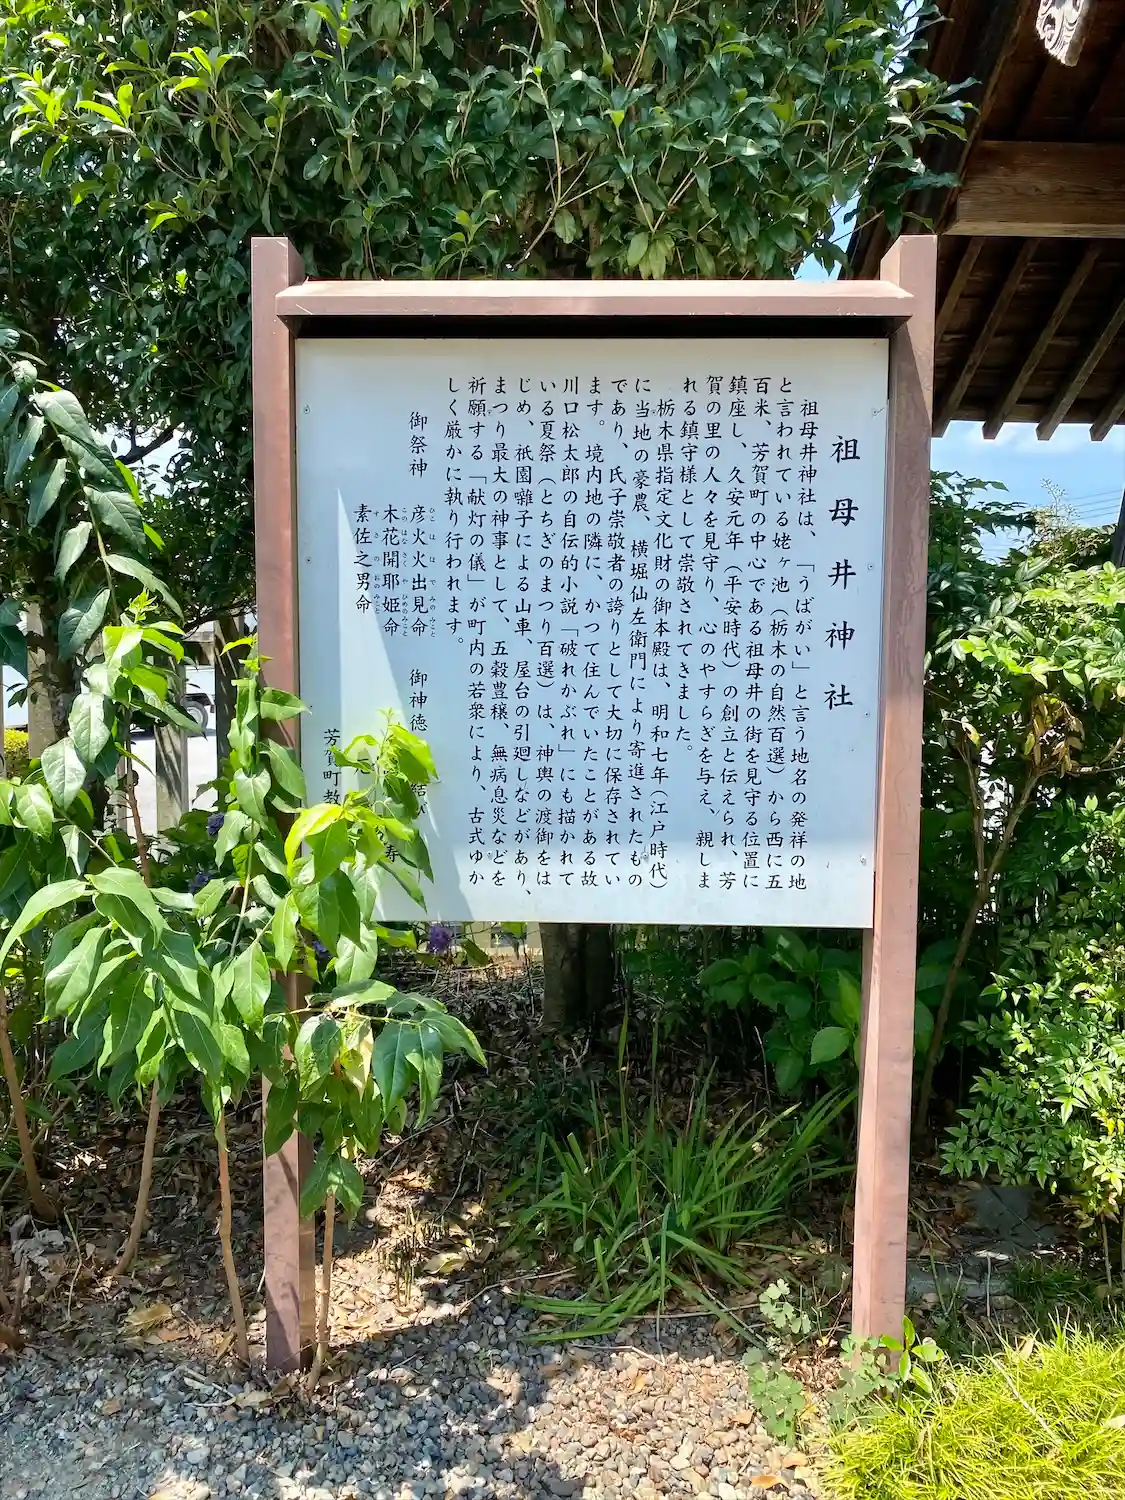 祖母井神社
祖母井神社は、「うばがい」と言う地名の発祥の地
と言われている姥ヶ池（栃木の自然百選）から西に五
百米、芳賀町の中心である祖母井の街を見守る位置に
鎮座し、久安元年（平安時代）の創立と伝えられ、芳
賀の里の人々を見守り、心のやすらぎを与え、親しま
れる鎮守様として崇敬されてきました。
栃木県指定文化財の御本殿は、明和七年（江戸時代）
に当地の豪農、横堀仙左衛門により寄進されたもの
であり、氏子崇敬者の誇りとして大切に保存されてい
ます。境内地の隣に、かつて住んでいたことがある故
川口松太郎の自伝的小説「破れかぶれ」にも描かれて
いる夏祭（とちぎのまつり百選）は、神輿の渡御をは
じめ、祇園囃子による山車、屋台の引廻しなどがあり、
まつり最大の神事として、五穀豊穣、無病息災などを
祈願する「献灯の儀」が町内の若衆により、古式ゆか
しく厳かに執り行われます。
御祭神　彦火火出見命　御神徳　結び
ひこほほでみのみこと
木花開耶姫命
このはなさくやひめのみこと
素佐之男命　寿
すさのおのみこと
芳賀町教